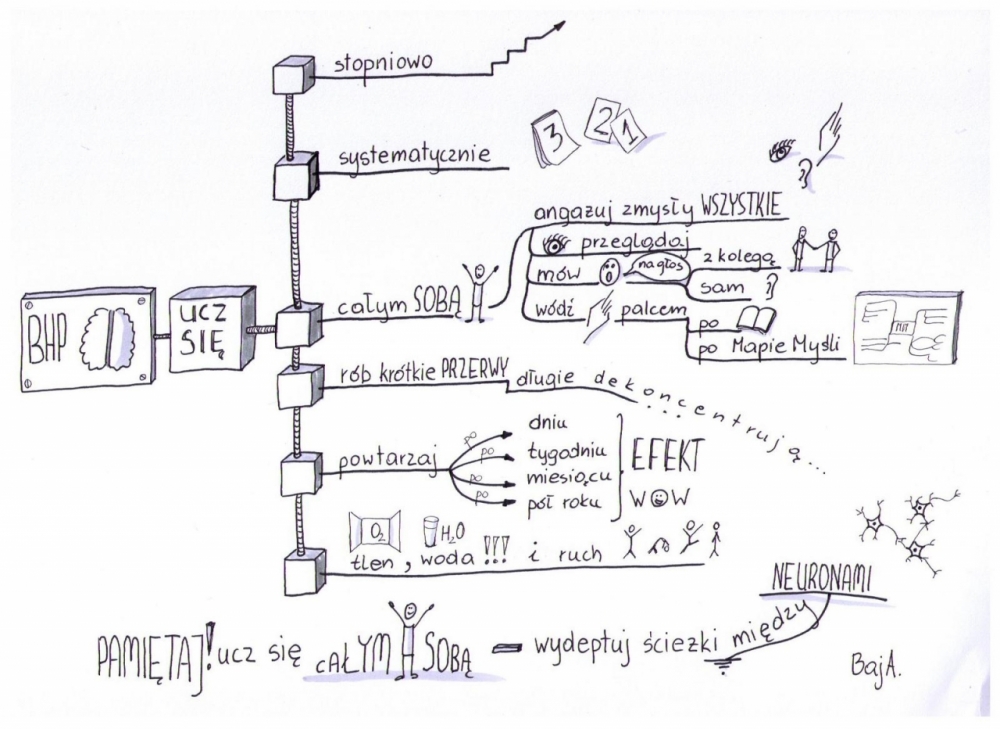 stopniowo
3 2 1
systematycznie
angażuj zmysły WSZYSTKIE
przeglądaj
mów na głos
z kolegą
sam
całym SOBĄ
wódź palcem
po
po Mapie Myśli
MM
BHP
UCZ
SIĘ
rób krótkie PRZERWY długie dekoncentrują...
powtarzaj
po dniu
po tygodniu
po miesiącu
po pół roku
EFEKT
WOW
O2 H2O
tlen, woda !!! i ruch
NEURONAMI
PAMIĘTAJ! ucz się CAŁYM SOBĄ = wydeptuj ścieżki między
BajA.